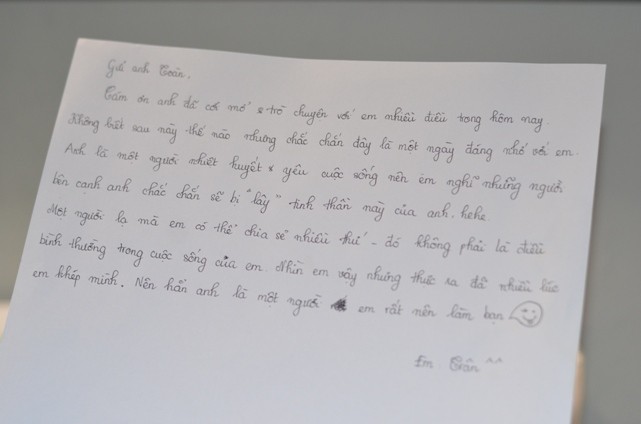 Gửi anh Toàn,
Cám ơn anh đã cởi mở & trò chuyện với em nhiều điều trong hôm nay.
Không biết sau này thế nào nhưng chắc chắn đây là một ngày đáng nhớ với em.
Anh là một người nhiệt huyết & yêu cuộc sống nên em nghĩ những người
bên cạnh anh chắc chắn sẽ bị "lây" tinh thần này của anh. hehe
Một người lạ mà em có thể chia sẻ nhiều thứ - đó không phải là điều
bình thường trong cuộc sống của em. Nhìn em vậy nhưng thực ra đã nhiều lúc
em khép mình. Nên hẳn anh là một người em rất nên làm bạn
Em Trân ^^